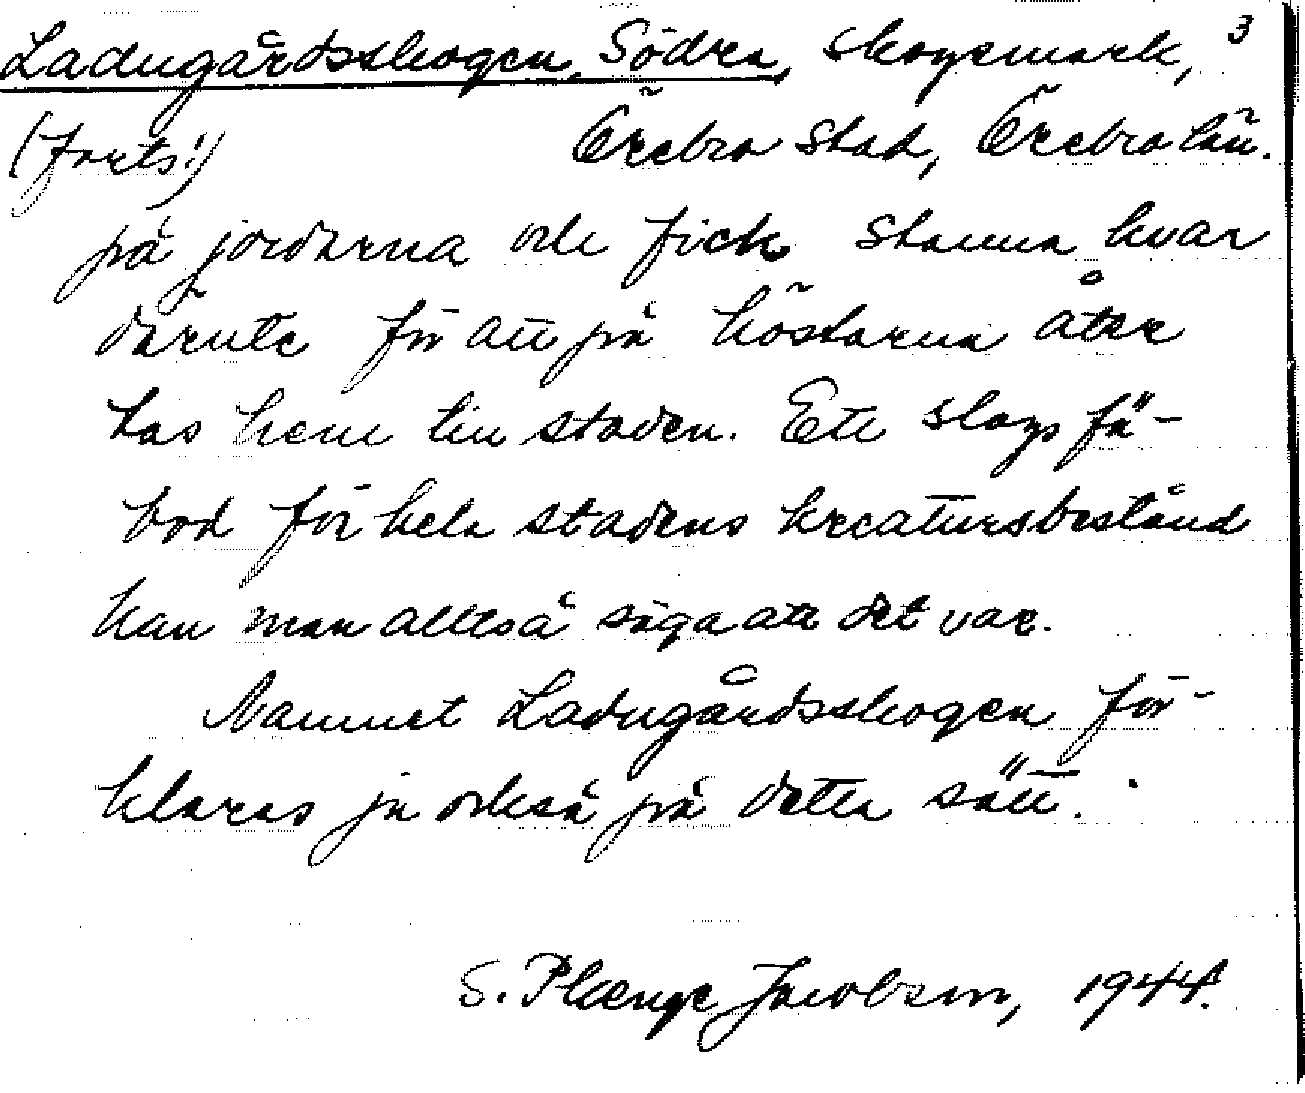 Ladugårdsskogen, Södra, skogsmark, 3
(forts.) Örebro stad, Örebro län.
på jordarna och fick stanna kvar
därute för att på höstarna åter
tas hem till staden. Ett slags fä-
bod för hela stadens kreatursbestånd
kan man alltså säga att det var.
Namnet Ladugårdsskogen för-
klaras ju också på detta sätt.
S. Plænge Jacobson, 1944.